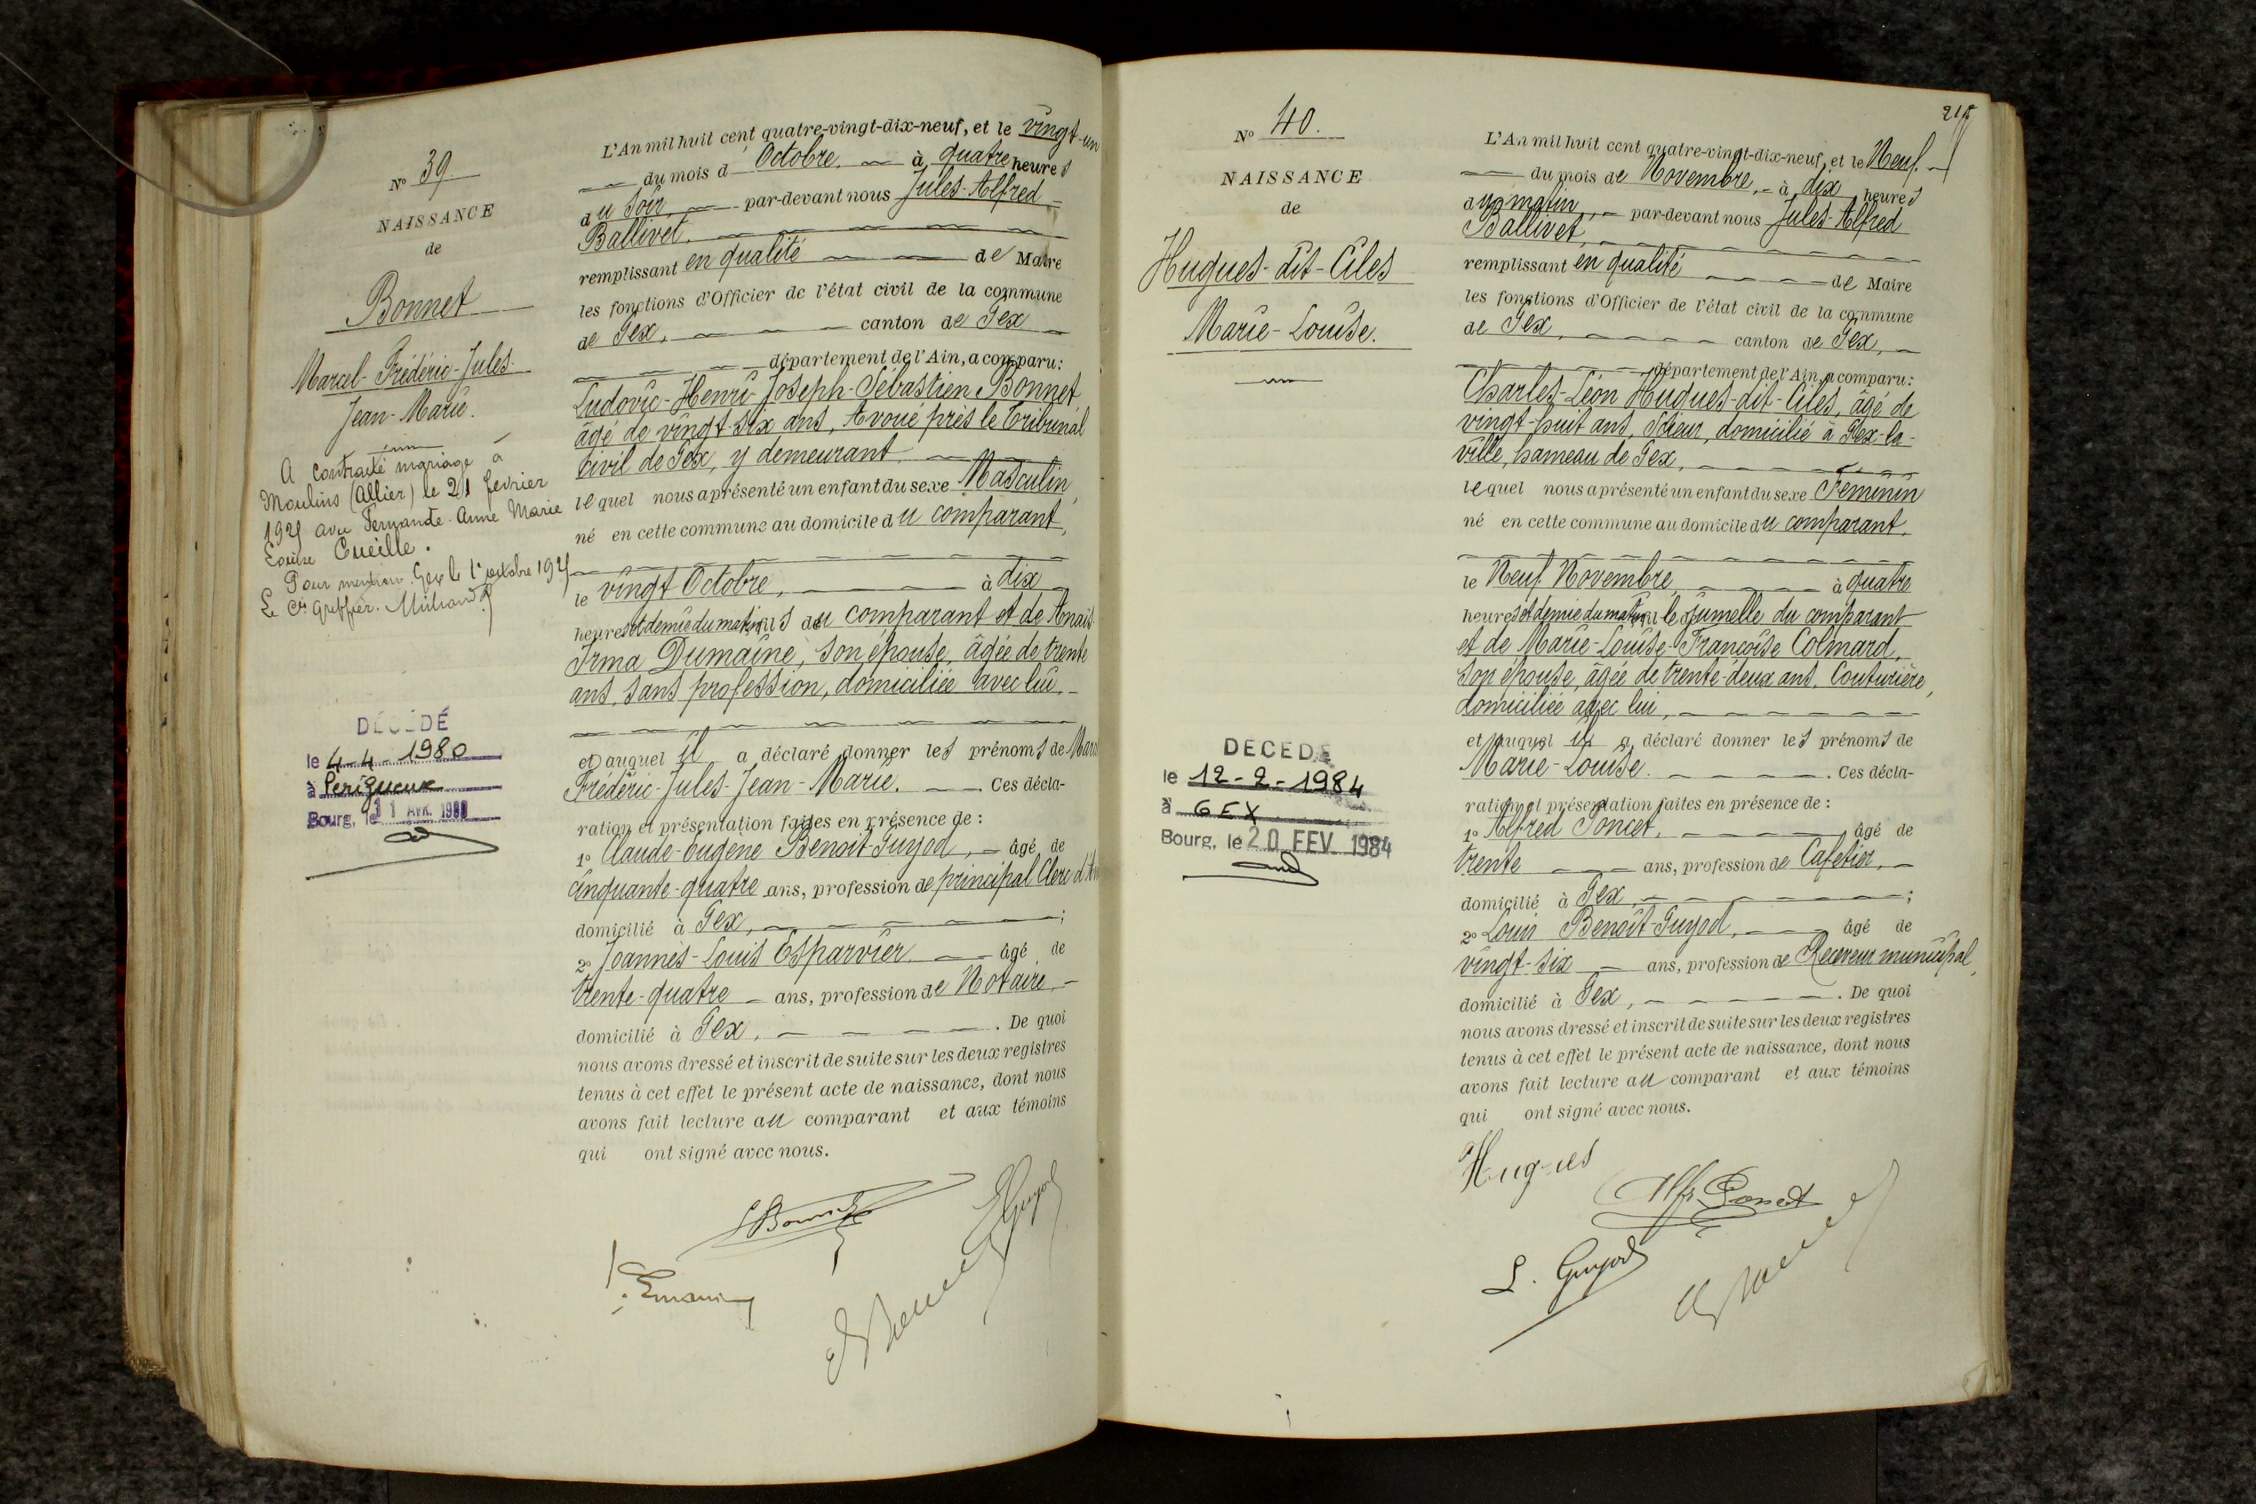 N° 39.
NAISSANCE
de
Bonnet
Marcel-Frédéric-Jules-
Jean-Marie.
A contracté mariage à
Moulins (Allier) le 21 février
avec Fernande-Anne Marie
Louise Cueille.
Pour mention Gex le 1er octobre
Le Cis Greffier.
DÉCÉDÉ
le 4-4-1980
à Périgueux
Bourg, le 11 AVR. 1980
L'An mil huit cent quatre-vingt-dix-neuf, et le vingt-un
du mois d'Octobre à quatre heures
du soir, par-devant nous Jules-Alfred
Ballivet,
remplissant en qualité de Maire
les fonctions d'Officier de l'état civil de la commune
de Gex, canton de Gex
département de l'Ain, a comparu:
Ludovic-Henri-Joseph-Sébastien Bonnet,
âgé de vingt-six ans, Avoué près le Tribunal
civil de Gex, y demeurant
lequel nous a présenté un enfant du sexe Masculin,
né en cette commune au domicile du comparant,
le vingt Octobre, à dix
heures et demie du matin, fils du comparant et de Anaïs
Irma Dumaine, son épouse, âgée de trente
ans, sans profession, domiciliée avec lui,
et auquel il a déclaré donner les prénoms de
Frédéric-Jules-Jean-Marie. Ces décla-
ration et présentation faites en présence de :
1° Claude-Eugène Benoit-Guyod, âgé de
cinquante-quatre ans, profession de principal Clerc
domicilié à Gex, ;
2° Joannès-Louis Esparvier âgé de
trente-quatre ans, profession de Notaire,
domicilié à Gex, . De quoi
nous avons dressé et inscrit de suite sur les deux registres
tenus à cet effet le présent acte de naissance, dont nous
avons fait lecture au comparant et aux témoins
qui ont signé avec nous.
N° 40.
NAISSANCE
de
Hugues-dit-Ciles
Marie-Louise.
DECEDE
le 12-2-1984
à GEX
Bourg, le 20 FEV. 1984
L'An mil huit cent quatre-vingt-dix-neuf, et le Neuf,
du mois de Novembre, à dix heures
du matin, par-devant nous Jules-Alfred
Ballivet,
remplissant en qualité de Maire
les fonctions d'Officier de l'état civil de la commune
de Gex, canton de Gex,
département de l'Ain, a comparu:
Charles-Léon Hugues-dit-Ciles, âgé de
vingt-huit ans, Scieur, domicilié à Gex-la-
ville, hameau de Gex,
lequel nous a présenté un enfant du sexe Féminin
né en cette commune au domicile du comparant,
le Neuf Novembre, à quatre
heures et demie du matin, le jumelle du comparant
et de Marie-Louise-Françoise Colmard,
son épouse, âgée de trente-deux ans, Couturière,
domiciliée avec lui,
et auquel il a déclaré donner les prénoms de
Marie-Louise. Ces décla-
ration et présentation faites en présence de :
1° Alfred Poncet, âgé de
trente ans, profession de Cafetier,
domicilié à Gex, ;
2° Louis Benoit-Guyod, âgé de
vingt-six ans, profession de Receveur municipal,
domicilié à Gex, . De quoi
nous avons dressé et inscrit de suite sur les deux registres
tenus à cet effet le présent acte de naissance, dont nous
avons fait lecture au comparant et aux témoins
qui ont signé avec nous.
Hugues
Alf. Poncet
L. Guyod